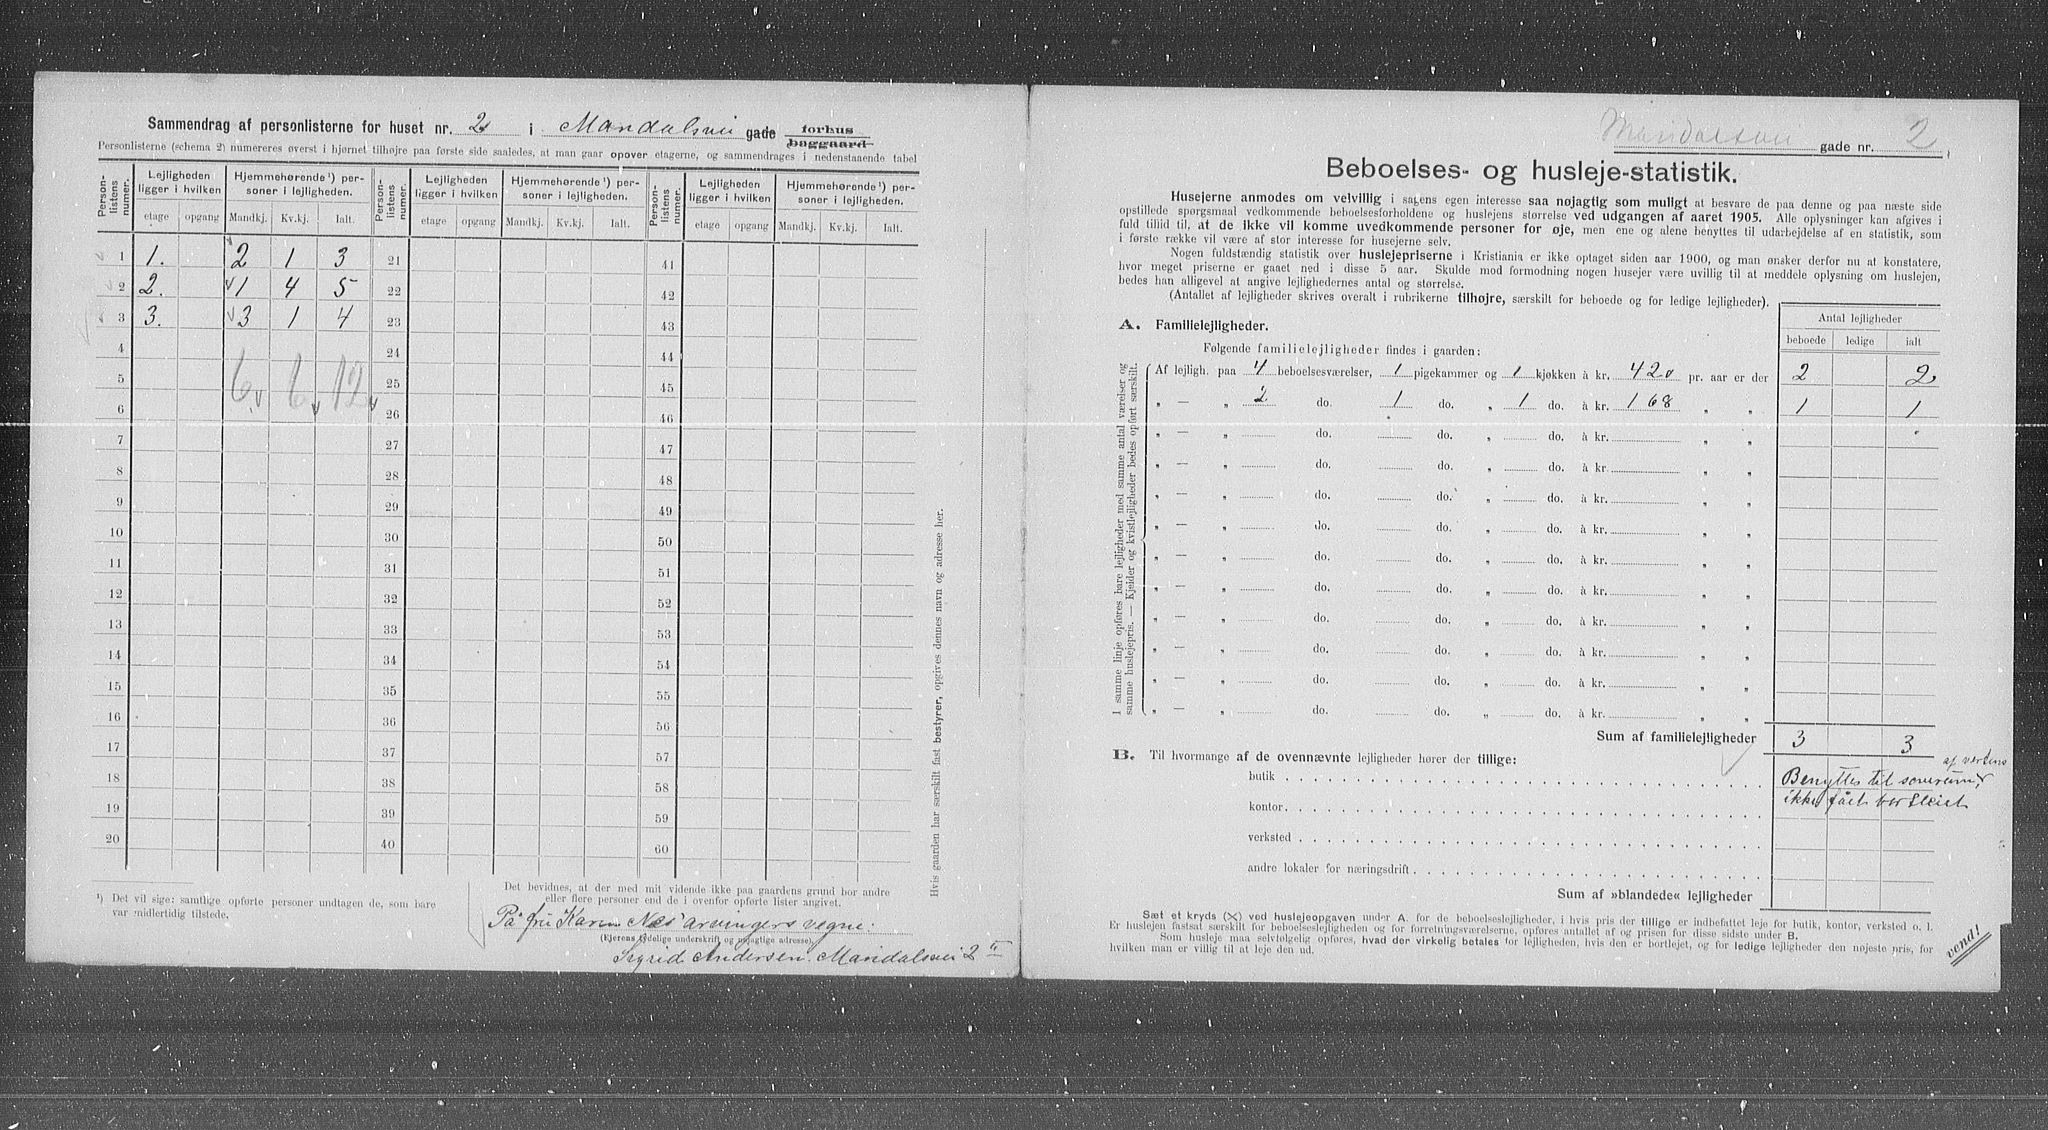 Sammendrag af personlisterne for huset nr. 2 i Mandalsvei gade forhus
baggaard
Personlisterne (schema 2) numereres øverst i hjørnet tilhøjre paa første side saaledes, at man gaar opover etagerne, og sammendrages i nedenstaaende tabel
Person-listens numer. Lejligheden ligger i hvilken Hjemmehørende ¹) personer i lejligheden. Person-listens numer. Lejligheden ligger i hvilken Hjemmehørende ¹) personer i lejligheden. Person-listens numer. Lejligheden ligger i hvilken Hjemmehørende ¹) personer i lejligheden.
etage opgang Mandkj. Kv.kj. Ialt. etage opgang Mandkj. Kv.kj. Ialt. etage opgang Mandkj. Kv.kj. Ialt.
1 1. 2 1 3 21 41
2 2. 1 4 5 22 42
3 3. 3 1 4 23 43
4 24 44
5 6 6 12 25 45
6 26 46
7 27 47
8 28 48
9 29 49
10 30 50
11 31 51
12 32 52
13 33 53
14 34 54
15 35 55
16 36 56
17 37 57
18 38 58
19 39 59
20 40 60
¹) Det vil sige: samtlige opførte personer undtagen de, som bare
var midlertidig tilstede.
Det bevidnes, at der med mit vidende ikke paa gaardens grund bor andre
eller flere personer end de i ovenfor opførte lister angivet.
På fru Karen Næs' arvingers vegne:
(Ejerens tydelige underskrift og nøjagtige adresse).
Sigrid Andersen. Mandalsvei 2 II
Hvis gaarden har særskilt fast bestyrer, opgives dennes navn og adresse her.
Mandalsvei gade nr. 2
Beboelses- og husleje-statistik.
Husejerne anmodes om velvillig i sagens egen interesse saa nøjagtig som muligt at besvare de paa denne og paa næste side
opstillede spørgsmaal vedkommende beboelsesforholdene og huslejens størrelse ved udgangen af aaret 1905. Alle oplysninger kan afgives i
fuld tillid til, at de ikke vil komme uvedkommende personer for øje, men ene og alene benyttes til udarbejdelse af en statistik, som
i første række vil være af stor interesse for husejerne selv.
Nogen fuldstændig statistik over huslejepriserne i Kristiania er ikke optaget siden aar 1900, og man ønsker derfor nu at konstatere,
hvor meget priserne er gaaet ned i disse 5 aar. Skulde mod formodning nogen husejer være uvillig til at meddele oplysning om huslejen,
bedes han alligevel at angive lejlighedernes antal og størrelse.
(Antallet af lejligheder skrives overalt i rubrikerne tilhøjre, særskilt for beboede og for ledige lejligheder).
Antal lejligheder
beboede ledige ialt
A. Familielejligheder.
Følgende familielejligheder findes i gaarden:
Af lejligh. paa 4 beboelsesværelser, 1 pigekammer og 1 kjøkken à kr. 420 pr. aar er der 2 2
„ — „ 2 do. 1 do. „ 1 do. à kr. 168 „ „ 1 1
„ — „ do. do. „ do. à kr. „ „
„ — „ do. do. „ do. à kr. „ „
„ — „ do. do. „ do. à kr. „ „
„ — „ do. do. „ do. à kr. „ „
„ — „ do. do. „ do. à kr. „ „
„ — „ do. do. „ do. à kr. „ „
„ — „ do. do. „ do. à kr. „ „
„ — „ do. do. „ do. à kr. „ „
„ — „ do. do. „ do. à kr. „ „
„ — „ do. do. „ do. à kr. „ „
I samme linje opføres bare lejligheder med samme antal værelser og
samme huslejepris. — Kjelder og kvistlejligheder bedes opført særskilt.
Sum af familielejligheder 3 3
B. Til hvormange af de ovennævnte lejligheder hører der tillige:
butik
kontor
verksted
andre lokaler for næringsdrift
af vertens
Benyttes til soverum,
ikke fået
Sum af »blandede« lejligheder
Sæt et kryds (X) ved huslejeopgaven under A. for de beboelseslejligheder, i hvis pris der tillige er indbefattet leje for butik, kontor, verksted o. l.
Er huslejen fastsat særskilt for beboelseslejligheden og for forretningsværelserne, opføres antallet af og prisen for disse sidste under B.
Som husleje maa selvfølgelig opføres, hvad der virkelig betales for lejligheden, hvis den er bortlejet, og for ledige lejligheder den nøjeste pris, for
hvilken man er villig til at leje den ud.
vend!